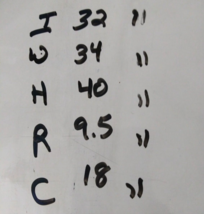 I 32 "
W 34 "
H 40 "
R 9.5 "
C 18 "